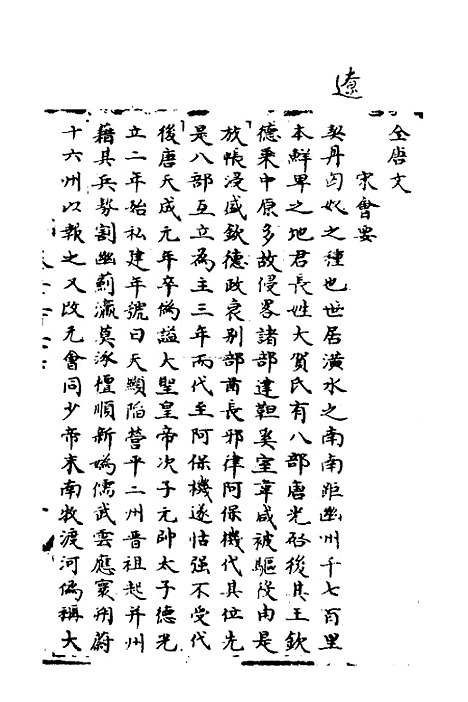 遼
全唐文
宋會要
契丹匈奴之種也世居潢水之南南距幽州千七百里
本鮮卑之地君長姓大賀氏有八部唐光啓後其王欽
德乘中原多故侵畧諸部達靼奚室韋咸被驅役由是
放帳浸盛欽德政衰别部酋長邪律阿保機代其位先
是八部互立為主三年而代至阿保機遂怙强不受代
後唐天成元年卒偽謚大聖皇帝次子元帥太子德光
立二年始私建年號曰天顯陷營平二州晋祖起并州
藉其兵勢割幽薊瀛莫涿檀順新媯儒武雲應寰朔蔚
十六州以報之又改元會同少帝末南牧渡河偽稱大